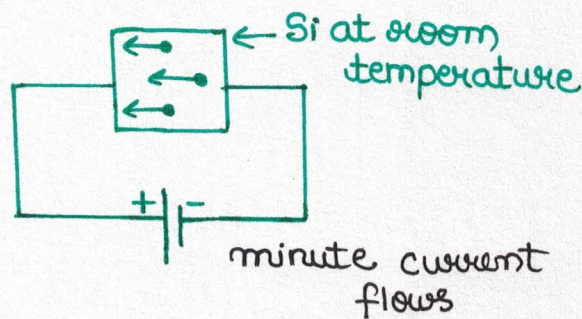 Si at room
temperature
+ -
minute current
flows